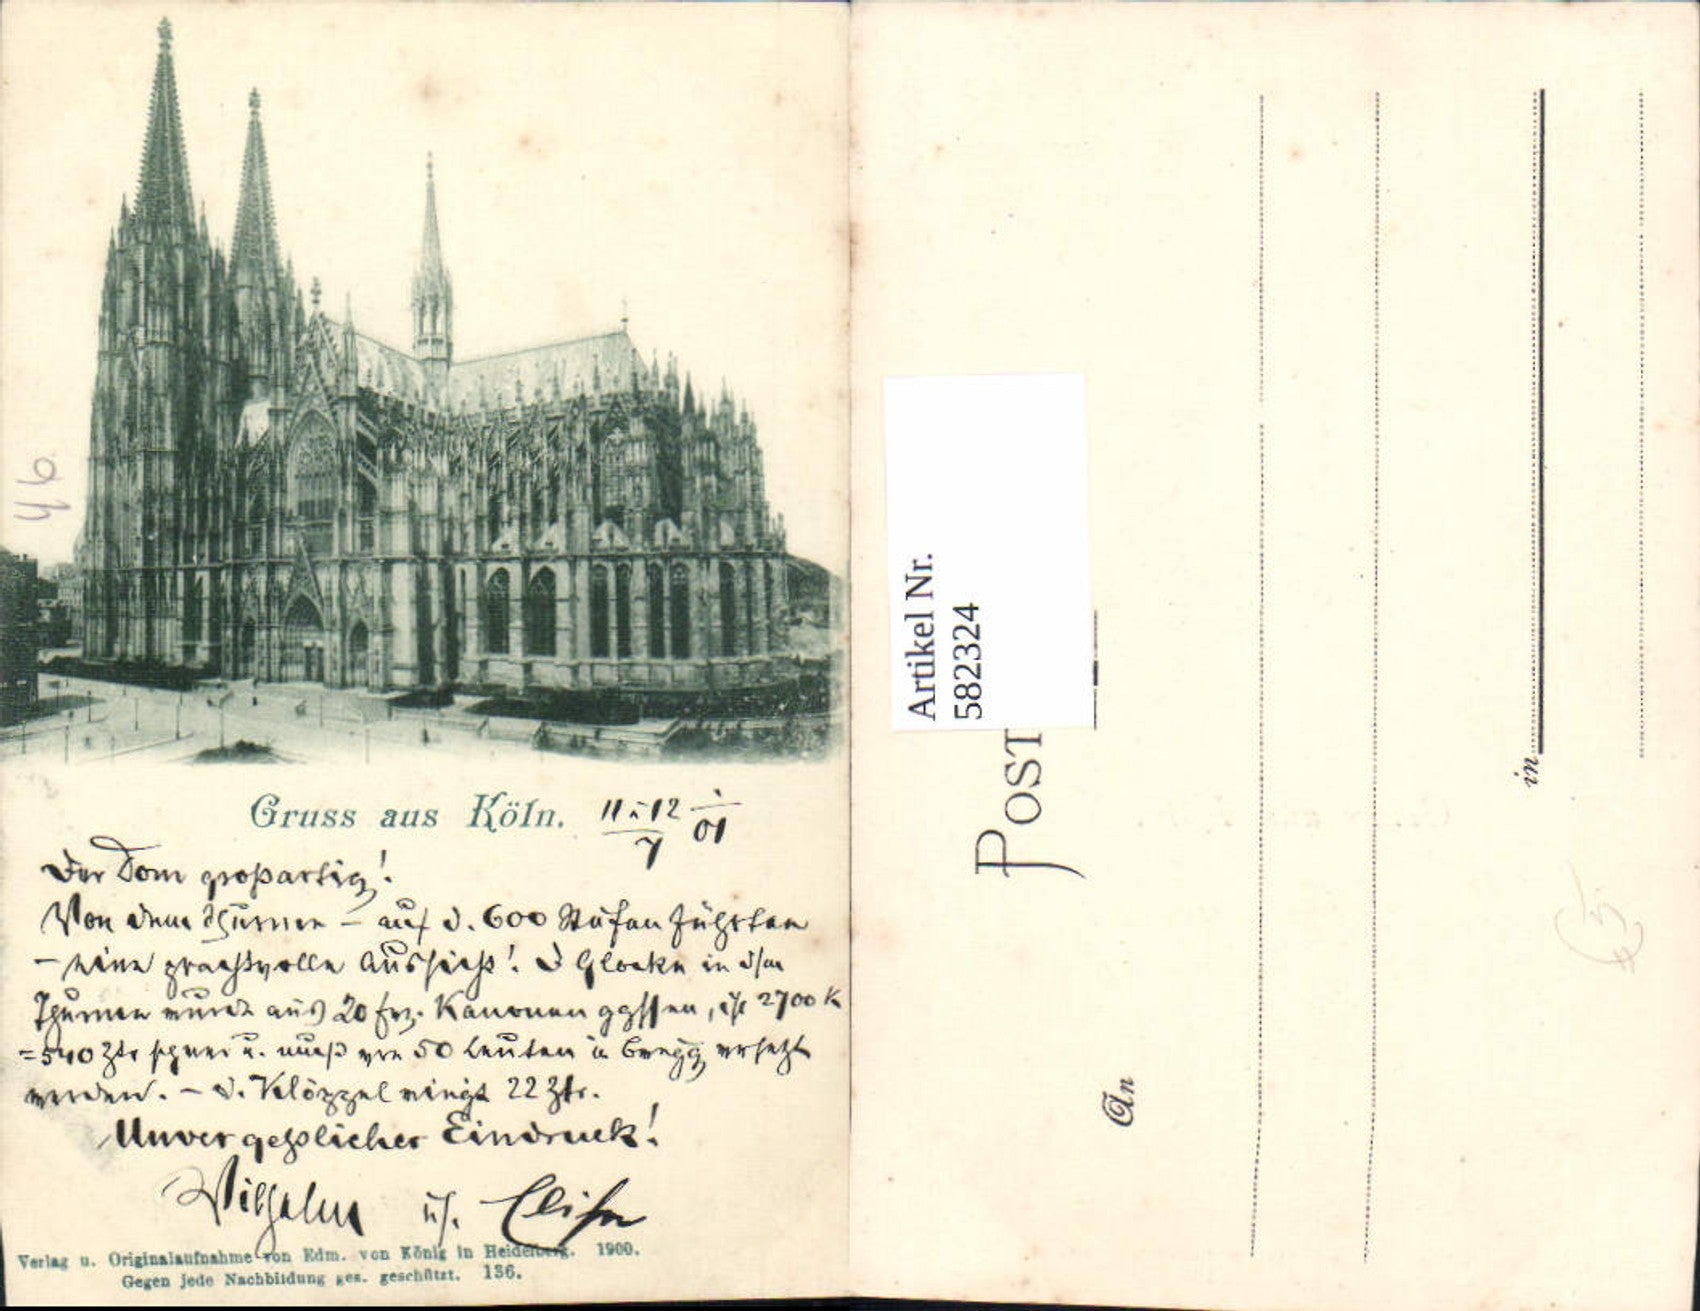 46
Gruss aus Köln. 11 u 12/7 01
Der Dom großartig!
Von dem Thürmen – auf d. 600 Stufen führten
– eine prachtvolle Aussicht! D Glocke in dem
Thurme wurde aus 20 frz. Kanonen gegossen, ist 2700 K
= 540 Ztr schwer u. muß von 50 Leuten in Bewgg versetzt
werden. – D. Klöppel wiegt 22 Ztr.
Unvergeßlicher Eindruck!
Wilhelm u. Elise
Verlag u. Originalaufnahme von Edm. von König in Heidelberg. 1900.
Gegen jede Nachbildung ges. geschützt. 136.
Artikel Nr.
582324
POST
An
in